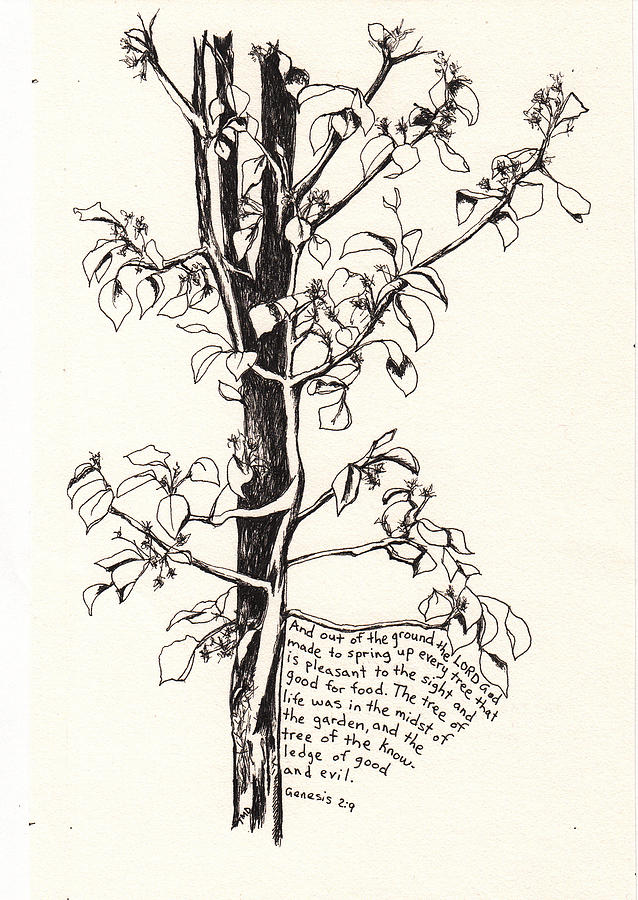 And out of the ground the LORD God
made to spring up every tree that
is pleasant to the sight and
good for food. The tree of
life was in the midst of
the garden, and the
tree of the know-
ledge of good
and evil.
Genesis 2:9
TMD